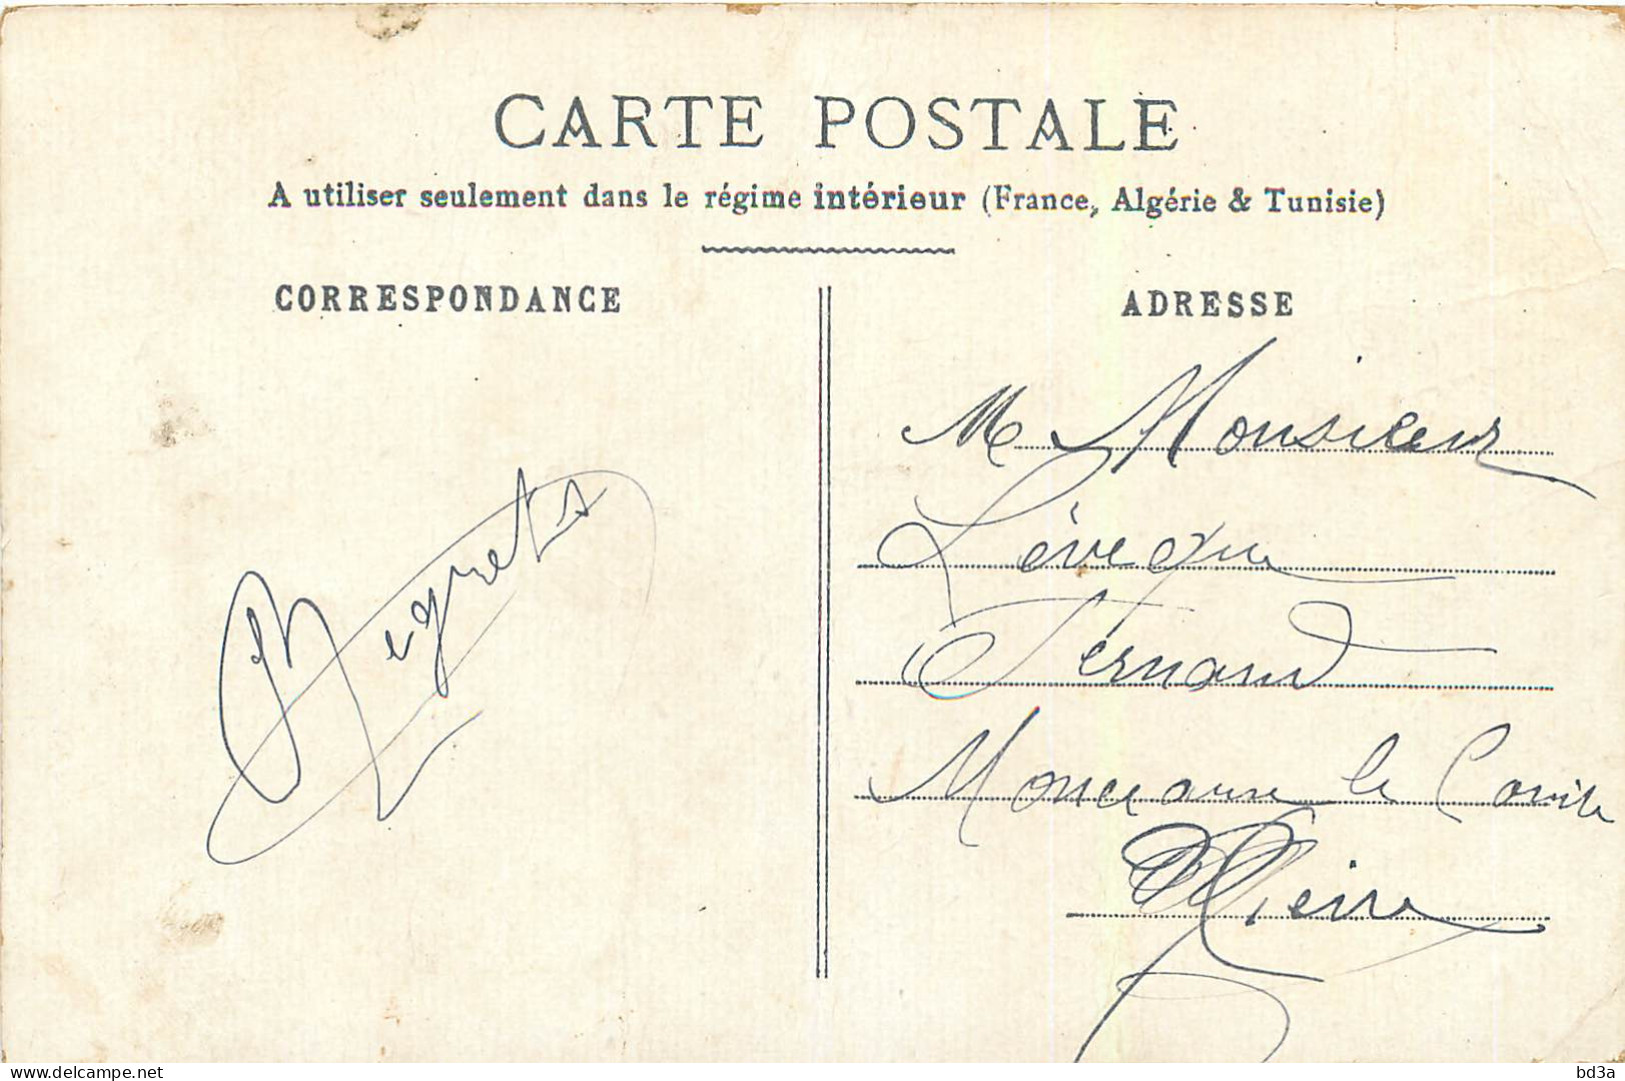 CARTE POSTALE
A utiliser seulement dans le régime intérieur (France, Algérie & Tunisie)
CORRESPONDANCE
ADRESSE
Regrets
M Monsieur
Lévêque
Fernand
Monceaux le Comte
delcampe.net
bd3a